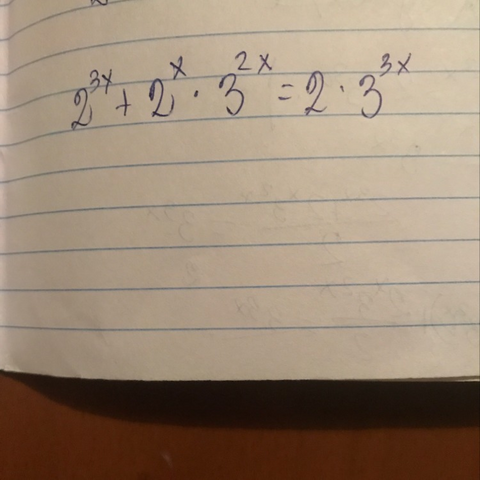 2^{3x} + 2^x · 3^{2x} = 2 · 3^{3x}